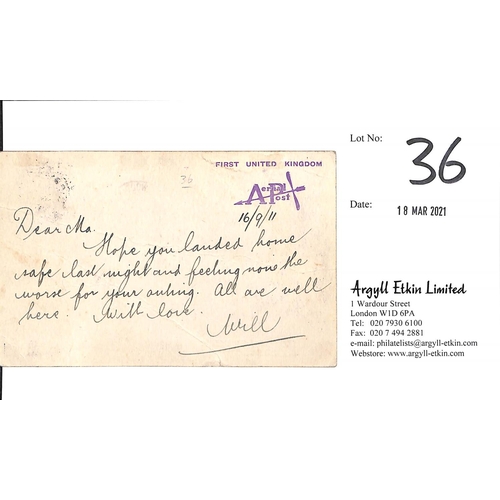 Lot No:
36
Date:
18 MAR 2021
Argyll Etkin Limited
1 Wardour Street
London W1D 6PA
Tel: 020 7930 6100
Fax: 020 7 494 2881
e-mail: philatelists@argyll-etkin.com
Webstore: www.argyll-etkin.com
FIRST UNITED KINGDOM
Aerial
Post
36
16/9/11
Dear Ma.
Hope you landed home
safe last night and feeling none the
worse for your outing. All are well
here. With love.
Will